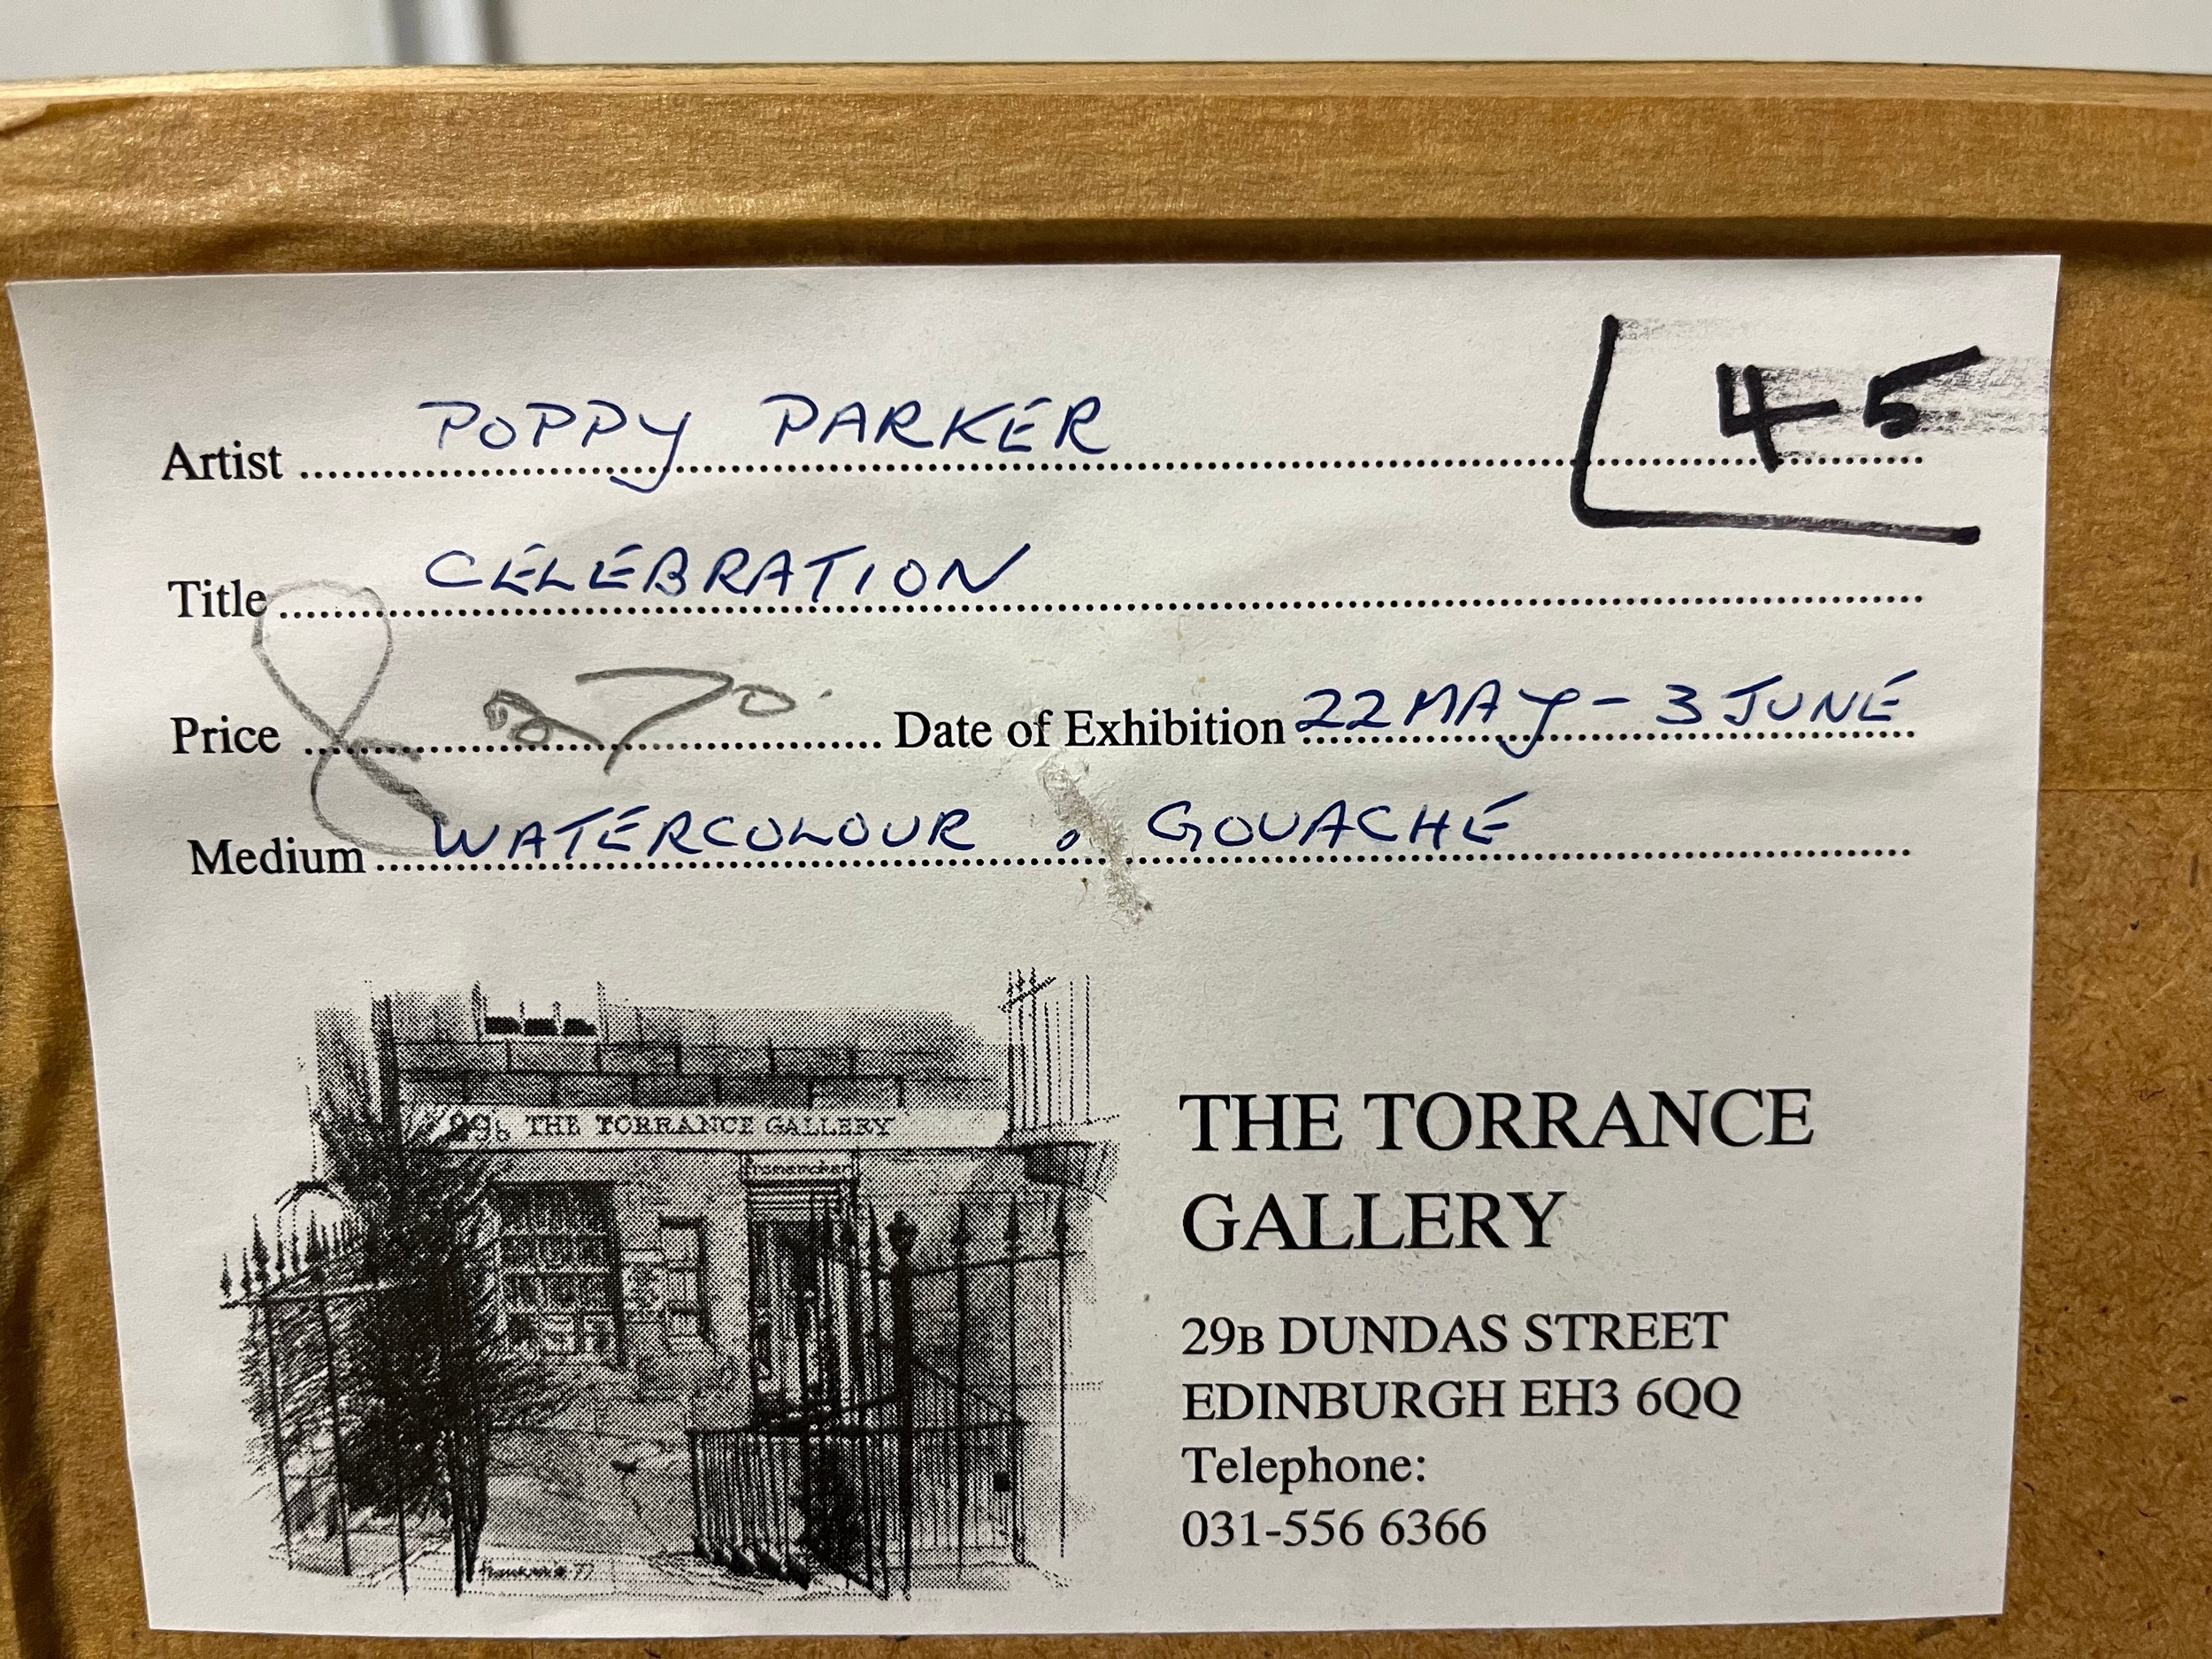 45
Artist POPPY PARKER
Title CELEBRATION
Price Date of Exhibition 22 MAY - 3 JUNE
Medium WATERCOLOUR . GOUACHE
29b THE TORRANCE GALLERY
framemaker
THE TORRANCE
GALLERY
29B DUNDAS STREET
EDINBURGH EH3 6QQ
Telephone:
031-556 6366